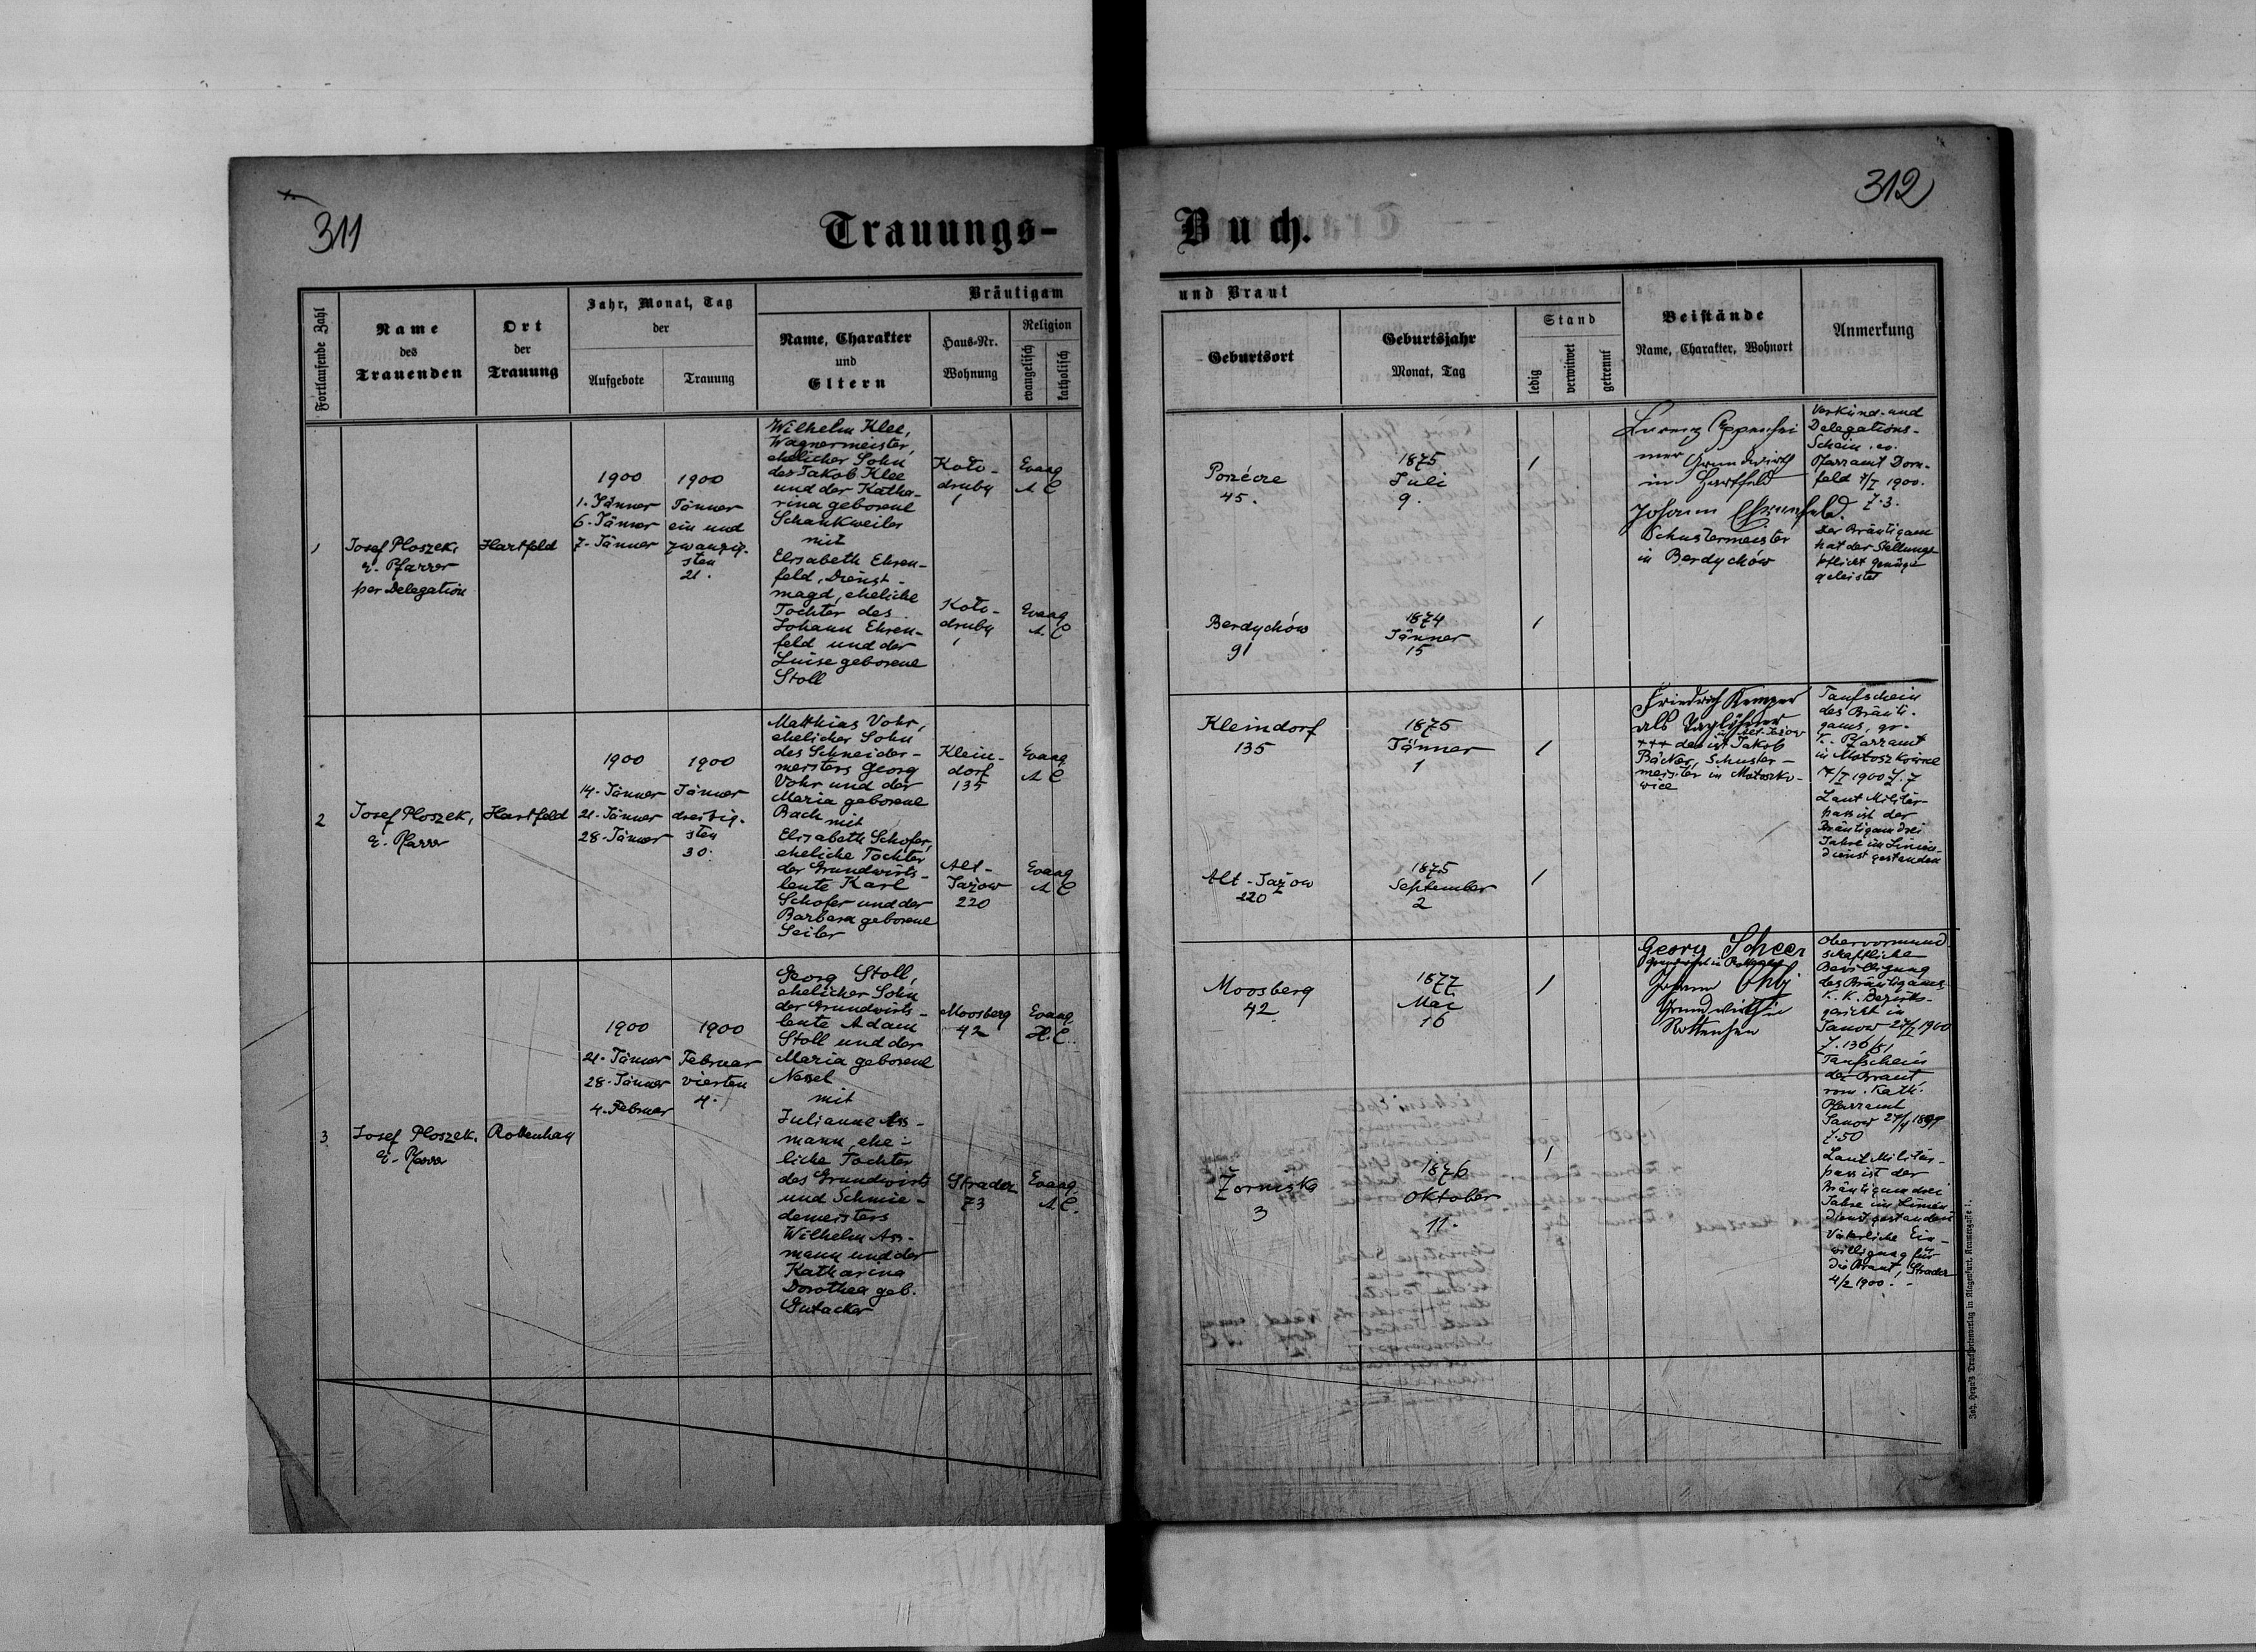 311
Trauungs-
Buch.
312
Fortlaufende Zahl
Name
des
Trauenden
Ort
der
Trauung
Jahr, Monat, Tag
der
Aufgebote
Trauung
Bräutigam
Name, Charakter
und
Eltern
Haus-Nr.
Wohnung
Religion
evangelisch
katholisch
und Braut
Geburtsort
Geburtsjahr
Monat, Tag
Stand
ledig
verwitwet
getrennt
Beistände
Name, Charakter, Wohnort
Anmerkung
1
Josef Ploszek,
E. Pfarrer
per Delegation
Hartfeld
1900
1. Jänner
6. Jänner
7. Jänner
1900
Jänner
ein und
zwanzig-
sten
21.
Wilhelm Klee,
Wagnermeister,
ehelicher Sohn
des Jakob Klee
und der Katha-
rina geborene
Schankweiler
mit
Elisabeth Ehren-
feld, Dienst-
magd, eheliche
Tochter des
Johann Ehren-
feld und der
Luise geborene
Stoll
Koło-
druby
1
Evang
A C
Koło-
druby
1
Evang
A. C
Porzécze
45.
1875
Juli
9.
1
Berdychów
91
1874
Jänner
15
1
Grundwirth
in Hartfeld
Johann Ehrenfeld.
Schustermeister
in Berdychów
Verkünd- und
Delegations-
Schein. ev.
Pfarramt Dorn-
feld 7/I 1900.
Z. 3.
Der Bräutigam
hat der Stellungs
pflicht Genüge
geleistet
2
Josef Ploszek,
E. Pfarrer
Hartfeld
1900
14. Jänner
21. Jänner
28. Jänner
1900
Jänner
dreißig-
sten
30.
Matthias Vohr,
ehelicher Sohn
des Schneider-
meisters Georg
Vohr und der
Maria geborene
Bach mit
Elisabeth Schofer,
eheliche Tochter
der Grundwirts-
leute Karl
Schofer und der
Barbara geborene
Seiler
Klein-
dorf
135
Evang
A C
Alt-
Jażow
220
Evang
A C
Kleindorf
135
1875
Jänner
1
1
Alt-Jażow
220
1875
September
2
1
Friedrich Kemper
als Taglöhner
in Alt-Jażow
+++ das ist Jakob
Bäcker, Schuster-
meister in Matoszko-
wice
Taufschein
des Bräuti-
gams, gr-
K. Pfarramt
in Matoszkowice
17/I 1900 Z. 7
Laut Militär-
pass ist der
Bräutigam drei
Jahre im Linien-
dienst gestanden
3
Josef Ploszek,
E. Pfarrer
Rottenhan
1900
21. Jänner
28. Jänner
4. Februar
1900
Februar
vierten
4.
Georg Stoll,
ehelicher Sohn
der Grundwirts-
leute Adam
Stoll und der
Maria geborene
Nessel
mit
Julianne Ass-
mann, ehe-
liche Tochter
des Grundwirts
und Schmie-
demeisters
Wilhelm Ass-
mann und der
Katharina
Dorothea geb.
Gutacker
Moosberg
42
Evang.
H. C.
Stradez
73
Evang.
A. C.
Moosberg
42
1877
Mai
16
1
Zorniska
3
1876
Oktober
11.
1
Georg Scheer
Johann
Grundwirth in
Rottenhan
Obervormund
schaftliche
Bewilligung
des Bräutigams
K. K. Bezirks-
gericht in
Janow 27/I 1900
Taufschein
der Braut
rom. Kath.
Pfarramt
Z. 50
Laut Militär-
pass ist der
Bräutigam drei
Jahre im Linien
dienst gestanden
Väterliche Ein-
willigung für
die Braut, Stradez
4/2 1900. -